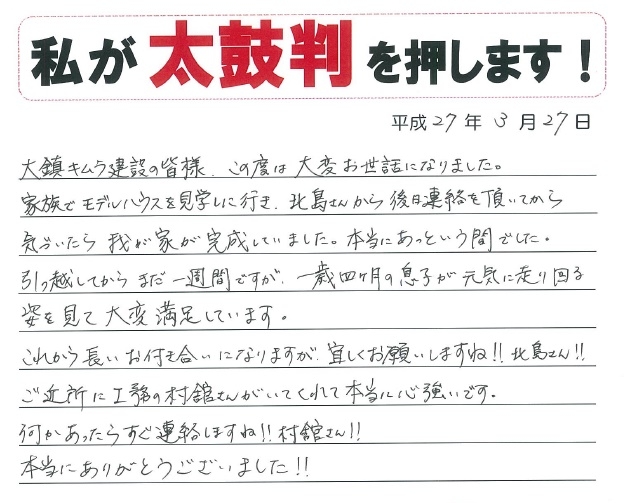 私が太鼓判を押します！
平成27年3月27日
大鎮キムラ建設の皆様、この度は大変お世話になりました。
家族でモデルハウスを見学しに行き、北島さんから後日連絡を頂いてから
気づいたら我が家が完成していました。本当にあっという間でした。
引っ越ししてからまだ一週間ですが、一歳四ヶ月の息子が元気に走り回る
姿を見て大変満足しています。
これから長いお付き合いになりますが、宜しくお願いしますね!!北島さん!!
ご近所に工務の村舘さんがいてくれて本当に心強いです。
何かあったらすぐ連絡しますね!!村舘さん!!
本当にありがとうございました!!